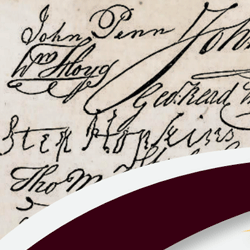 John Penn
John
Wm Floyd
Geo: Read
Step Hopkins
Tho M